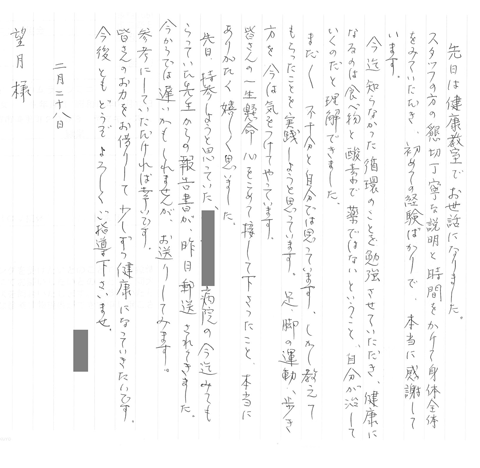 先日は健康教室でお世話になりました。
スタッフの方の懇切丁寧な説明と時間をかけて身体全体
をみていただき、初めての経験ばかりで、本当に感謝して
います。
今迄知らなかった循環のことを勉強させていただき、健康に
なるのは食べ物と酸素で薬ではないということ、自分が治して
いくのだと理解できました。
まだまだ不十分と自分では思っています。しかし教えて
もらったことを実践しようと思っています。足、脚の運動、歩き
方を今は気をつけてやっています。
皆さんの一生懸命心をこめて接して下さったこと、本当に
ありがたく嬉しく思いました。
先日持参しようと思っていた、病院の今迄みても
らっていた先生からの報告書が、昨日郵送されてきました。
今からでは遅いかもしれませんが、お送りしてみます。
参考にしていただければ幸いです。
皆さんのお力をお借りして少しずつ健康になっていきたいです。
今後ともどうぞよろしくご指導下さいませ。
二月二十八日
望月様